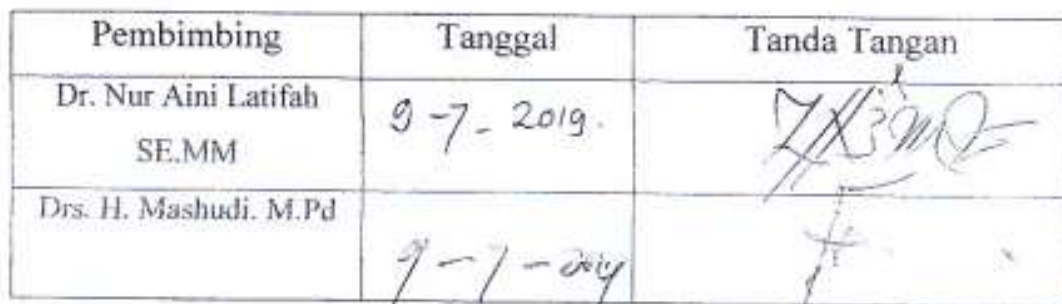 Pembimbing Tanggal Tanda Tangan
Dr. Nur Aini Latifah
SE.MM
9-7-2019.
Drs. H. Mashudi. M.Pd
9-7-2019